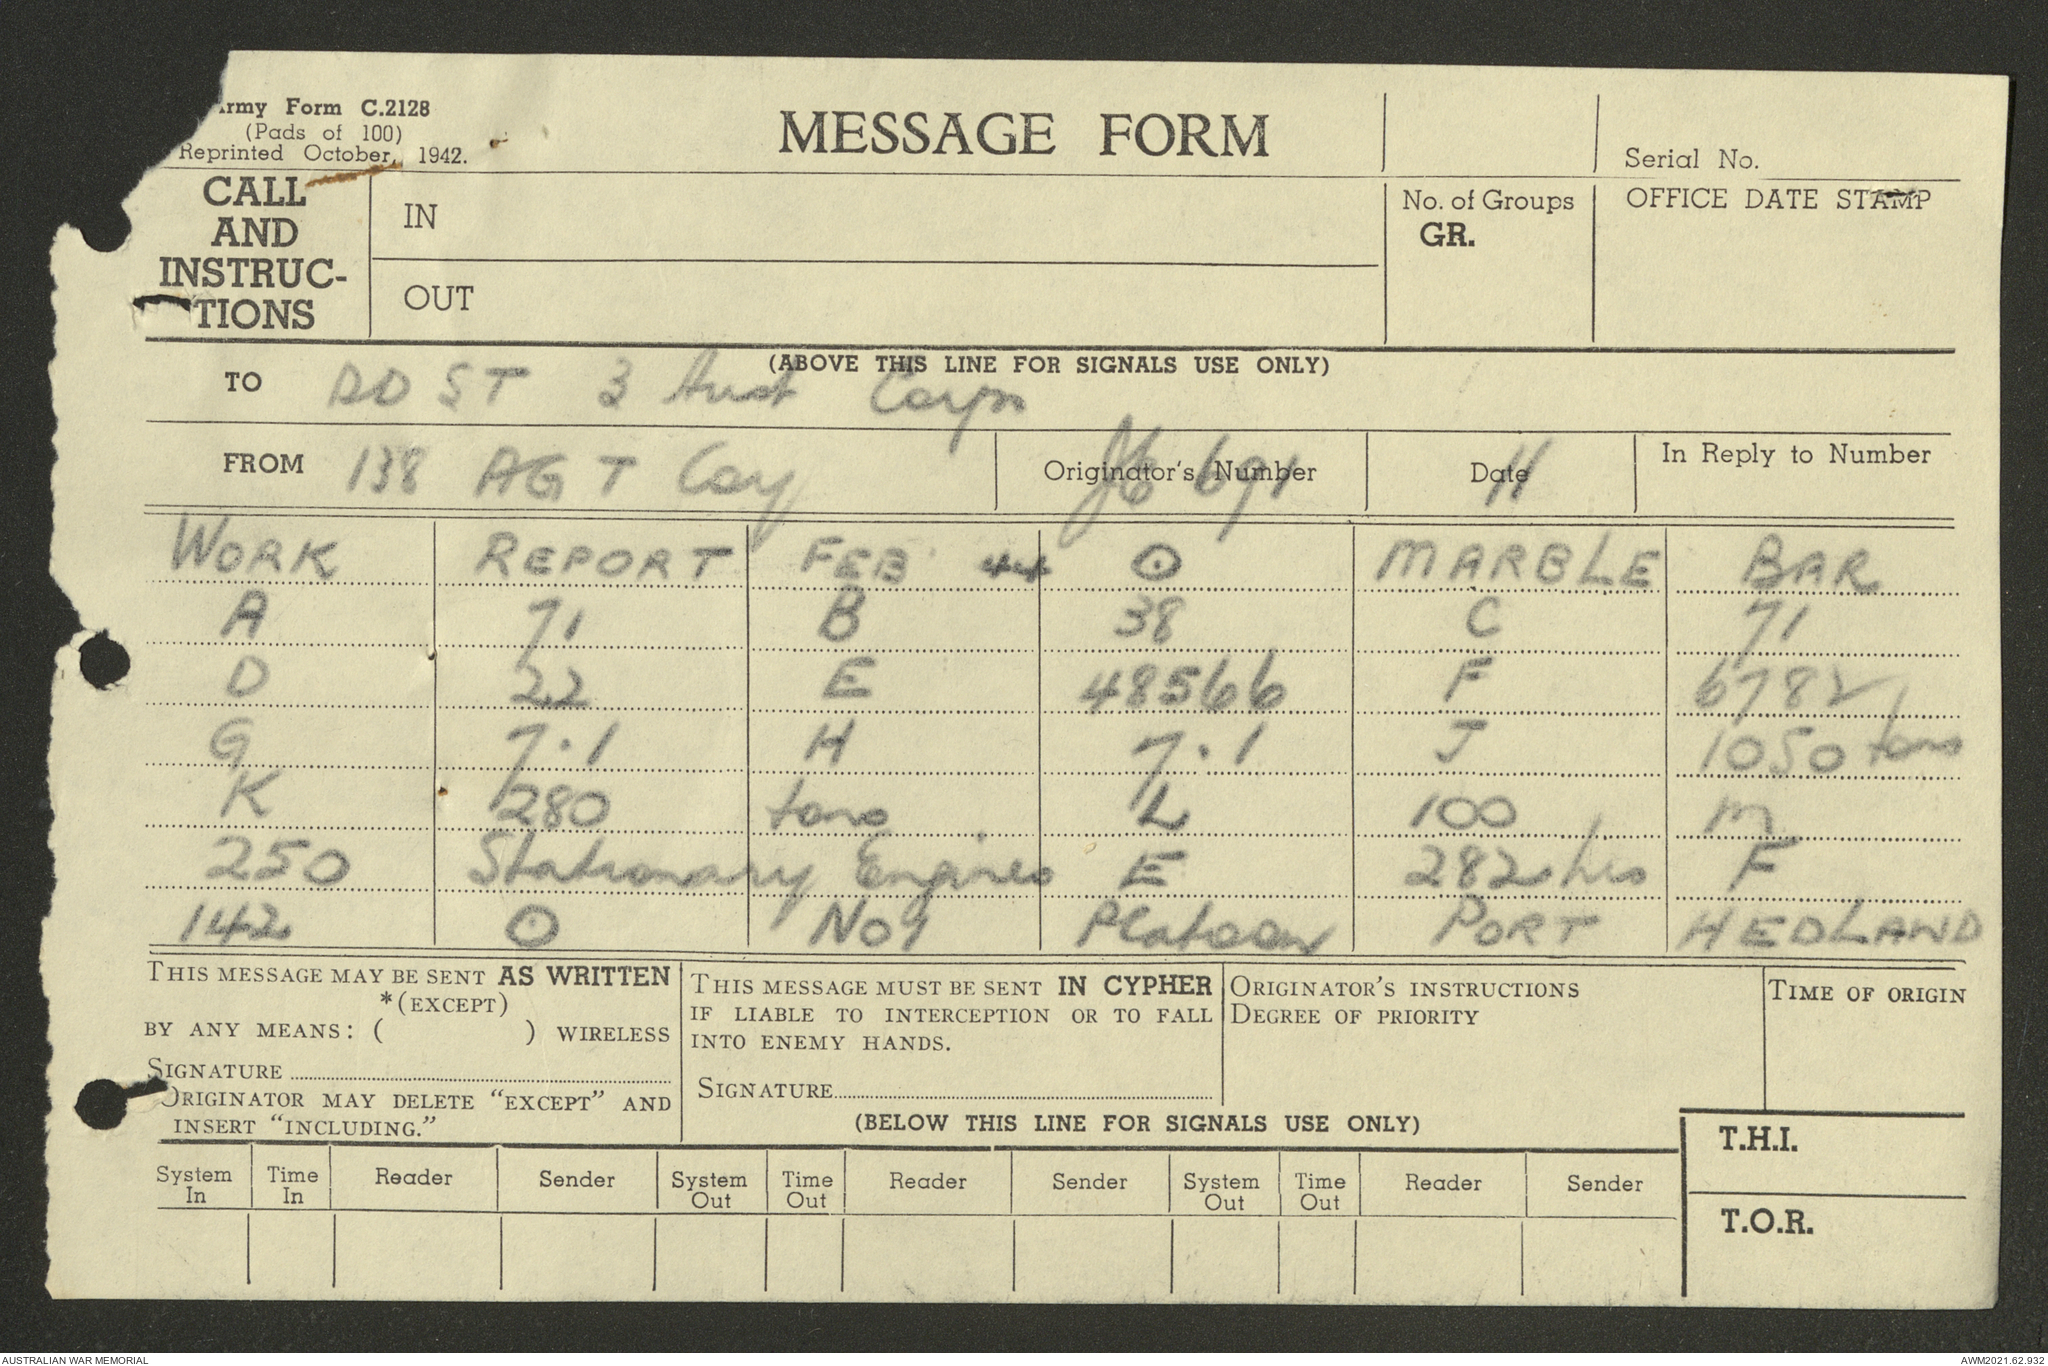 Army Form C.2128
(Pads of 100)
Reprinted October, 1942.
MESSAGE FORM
Serial No.
CALL
AND
INSTRUC-
TIONS
IN
OUT
No. of Groups
GR.
OFFICE DATE STAMP
(ABOVE THIS LINE FOR SIGNALS USE ONLY)
TO DDST 3 Aust Corps
FROM 138 AGT Coy Originator's Number 691 Date 11 In Reply to Number
WORK REPORT FEB 44 ⊙ MARBLE BAR
A 71 B 38 C 71
D 22 E 48566 F 6782
G 7.1 H 7.1 J 1050 tons
K 280 tons L 100 M
250 Stationary Engines E 282 hrs F
142 ⊙ No 1 Platoon PORT HEDLAND
THIS MESSAGE MAY BE SENT AS WRITTEN
*(EXCEPT)
BY ANY MEANS: ( ) WIRELESS
SIGNATURE
ORIGINATOR MAY DELETE "EXCEPT" AND
INSERT "INCLUDING."
THIS MESSAGE MUST BE SENT IN CYPHER
IF LIABLE TO INTERCEPTION OR TO FALL
INTO ENEMY HANDS.
SIGNATURE
ORIGINATOR'S INSTRUCTIONS
DEGREE OF PRIORITY
TIME OF ORIGIN
(BELOW THIS LINE FOR SIGNALS USE ONLY)
T.H.I.
T.O.R.
System In Time In Reader Sender System Out Time Out Reader Sender System Out Time Out Reader Sender
AUSTRALIAN WAR MEMORIAL
AWM2021.62.932